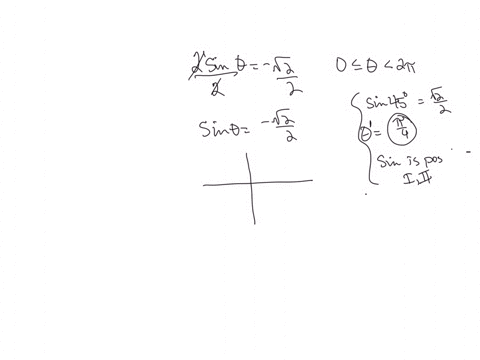 2 sin θ = -√2 / 2   0 ≤ θ < 2π
2
sin 45° = √2 / 2
sin θ = -√2 / 2
θ' = π / 4
Sin is pos
I, II